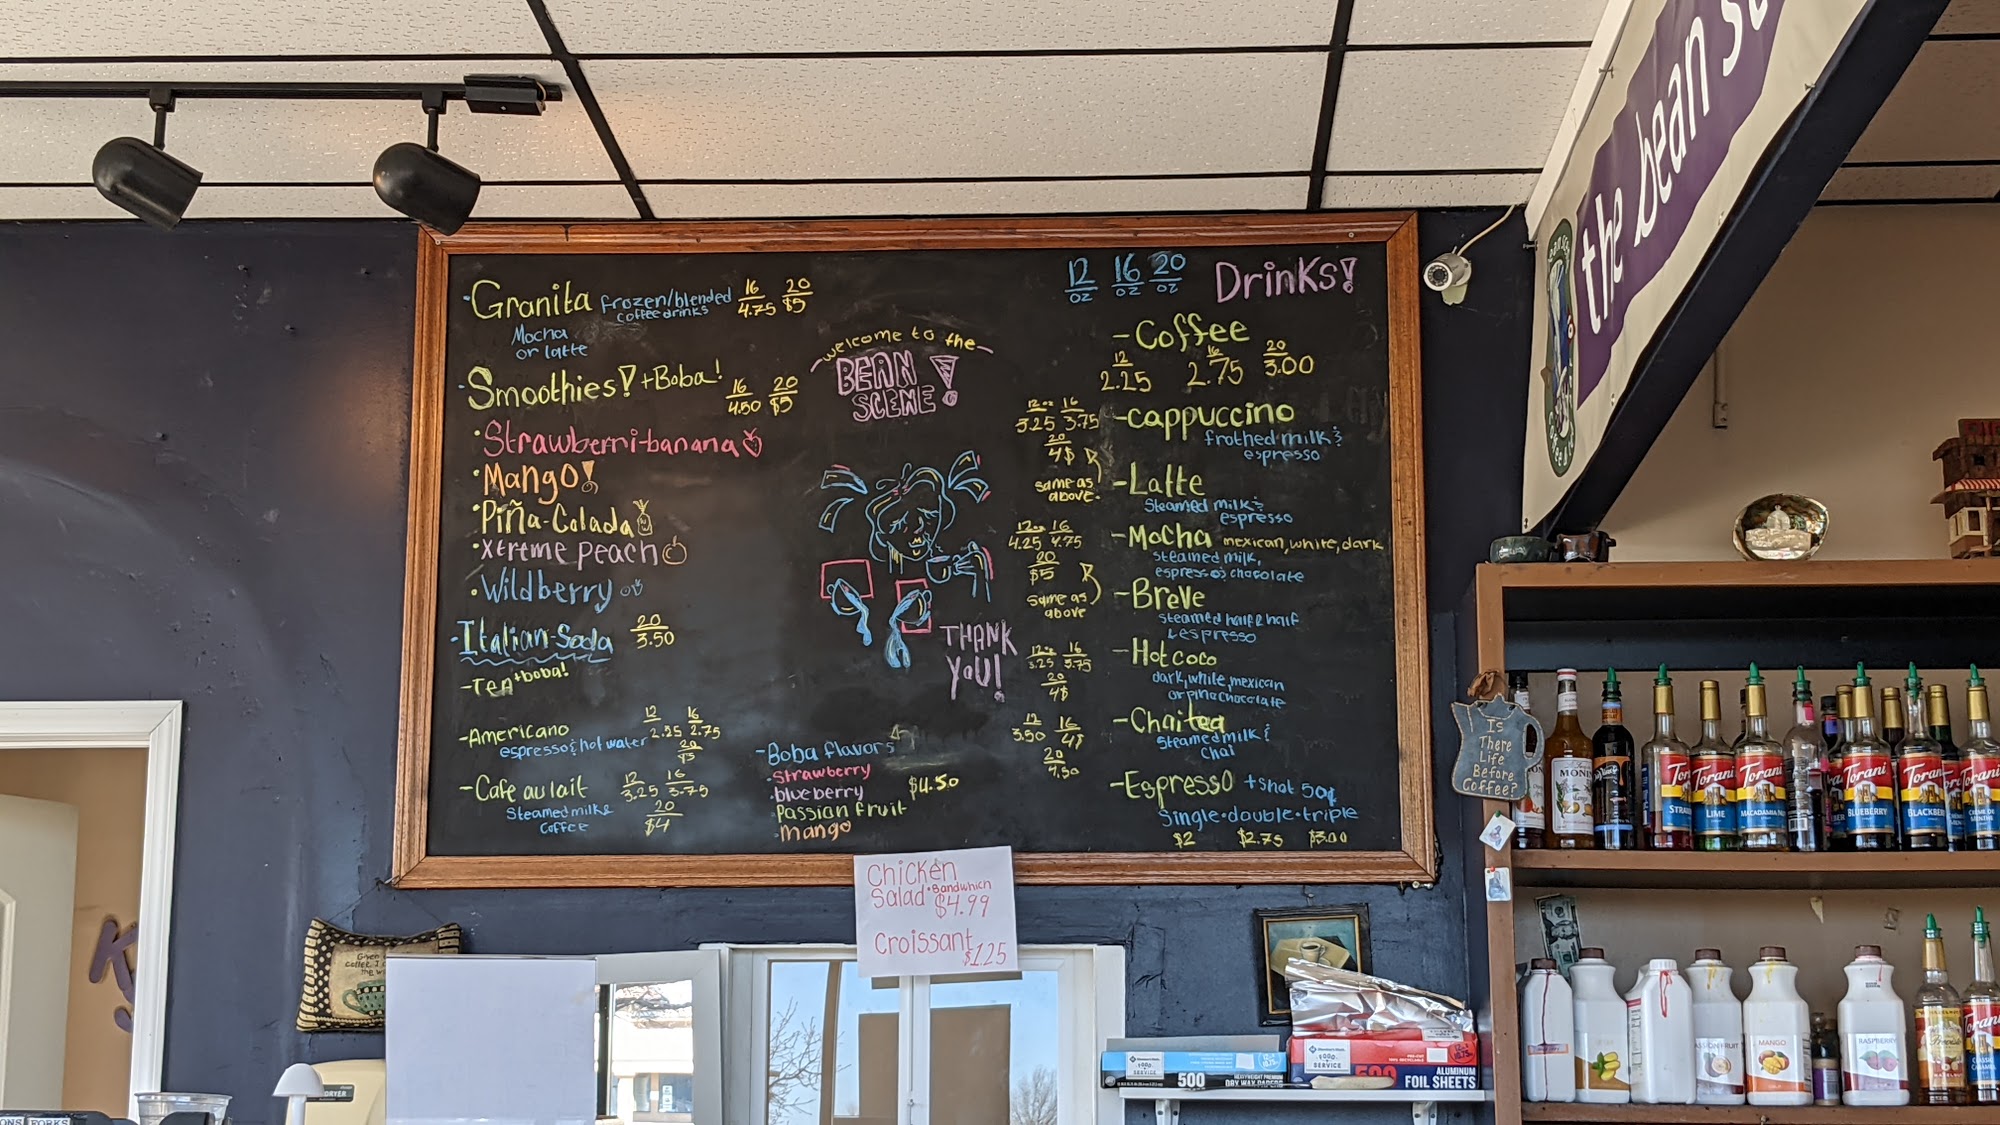 ·Granita frozen/blended 16 20
coffee drinks 4.75 $5
Mocha
or latte
·Smoothies! +Boba! 16 20
4.50 $5
·Strawberri-banana
·Mango!
·Piña-Colada
·Xtreme peach
·Wildberry
·Italian-Soda 20
3.50
-Tea +boba!
-Americano 12 16
espresso & hot water 2.25 2.75
20
$3
-Cafe au lait 12 16
3.25 3.75
Steamed milk & 20
coffee $4
welcome to the
BEAN
SCENE!
THANK
YOU!
-Boba flavors
·Strawberry
·blueberry $4.50
·Passian fruit
·Mango
12 16 20 Drinks!
oz oz oz
-Coffee
12 16 20
2.25 2.75 3.00
12oz 16 -cappuccino
3.25 3.75 frothed milk &
20 espresso
4$
same as -Latte
above- Steamed milk &
espresso
12oz 16 -Mocha mexican, white, dark
4.25 4.75 steamed milk,
20 espresso & chocolate
$5
same as -Breve
above steamed half & half
& espresso
12oz 16 -Hot coco
3.25 3.75 dark, white, mexican
20 or pinachocolate
4$
12 16 -Chai tea
3.50 4$ Steamed milk &
20 Chai
4.50
-Espresso +shot 50¢
Single·double·triple
$2 $2.75 $3.00
Chicken
Salad ·Sandwhich
$4.99
Croissant
$1.25
the bean sc
Is
There
Life
Before
Coffee?
MONIN
Torani
LIME
Torani
MACADAMIA NUT
Torani
BLUEBERRY
Torani
BLACKBE
Torani
MANGO
RASPBERRY
Torani
500
DRY WAX PAPER
FOOD
SERVICE
500
ALUMINUM
FOIL SHEETS
DRYER
FORKS